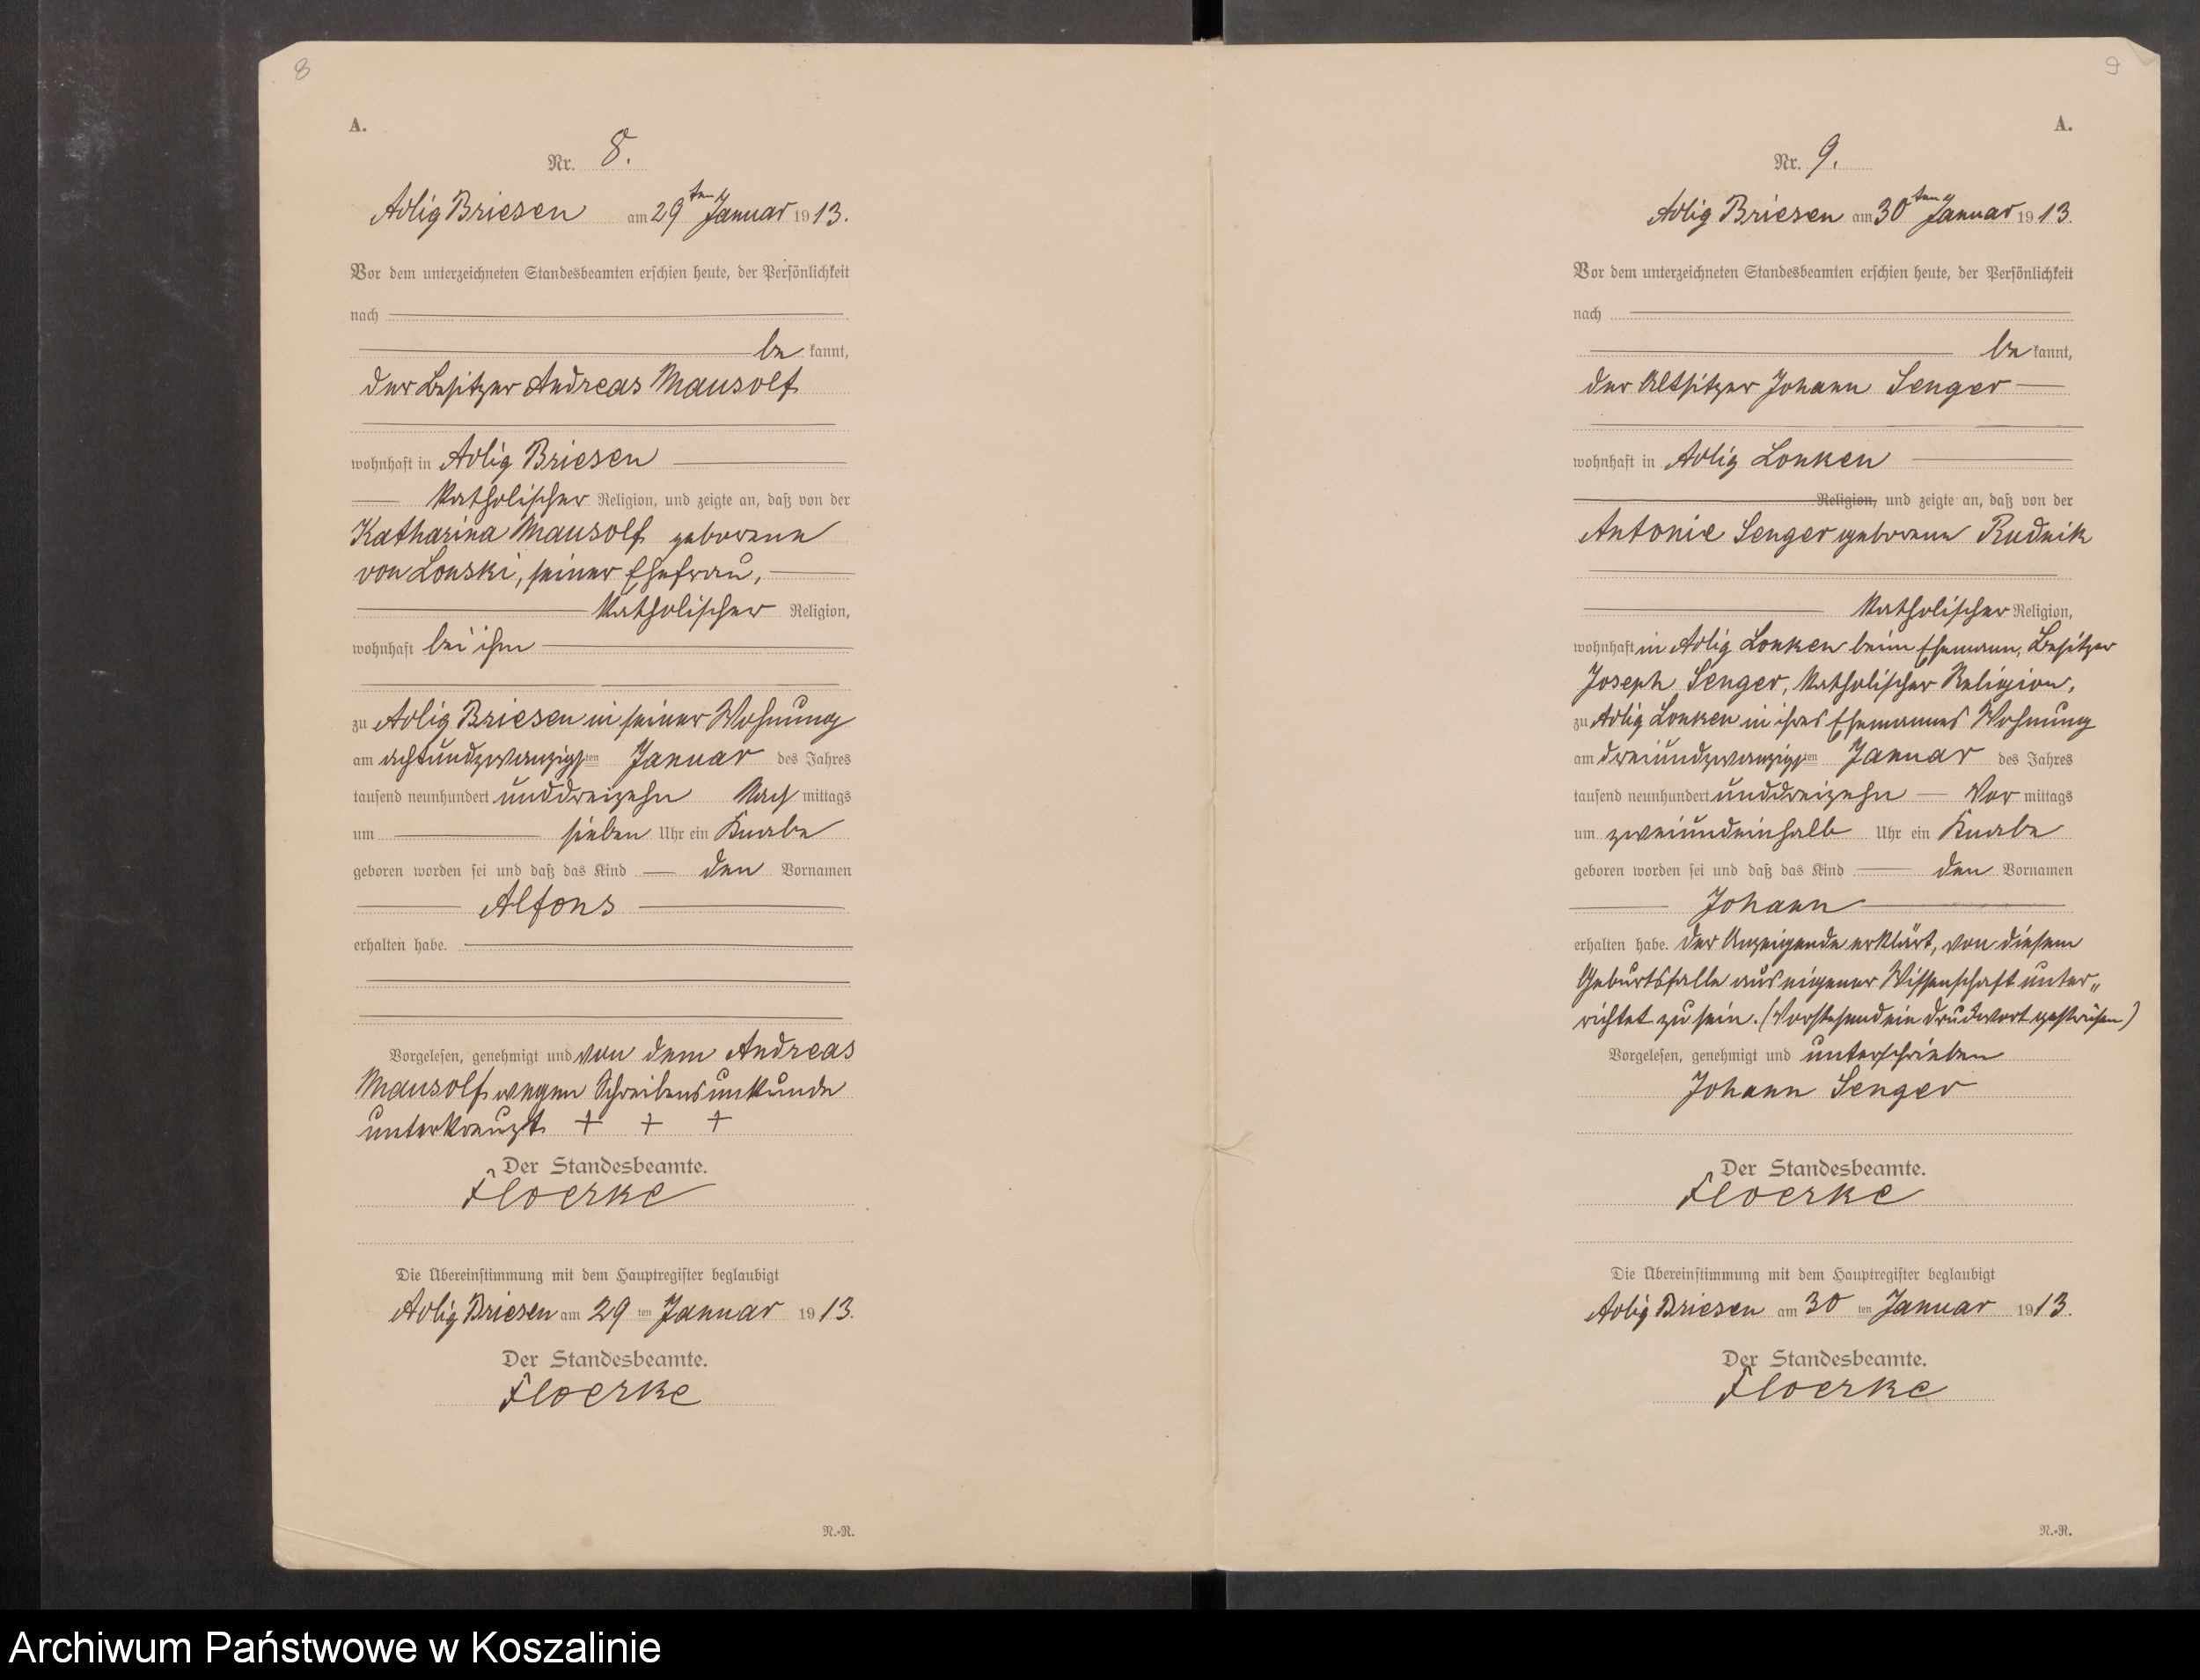 8
A.
Nr. 8.
Adlig Briesen am 29ten Januar 1913.
Vor dem unterzeichneten Standesbeamten erschien heute, der Persönlichkeit
nach
be kannt,
der Besitzer Andreas Mausolf
wohnhaft in Adlig Briesen
katholischer Religion, und zeigte an, daß von der
Katharina Mausolf geborene
von Lonski, seiner Ehefrau,
katholischer Religion,
wohnhaft bei ihm
zu Adlig Briesen in seiner Wohnung
am achtundzwanzigsten Januar des Jahres
tausend neunhundert unddreizehn Nach mittags
um sieben Uhr ein Knabe
geboren worden sei und daß das Kind den Vornamen
Alfons
erhalten habe.
Vorgelesen, genehmigt und von dem Andreas
Mausolf wegen Schreibensunkunde
unterkreuzt. + + +
Der Standesbeamte.
Floerke
Die Übereinstimmung mit dem Hauptregister beglaubigt
Adlig Briesen am 29 ten Januar 1913.
Der Standesbeamte.
Floerke
N.-R.
9
A.
Nr. 9.
Adlig Briesen am 30ten Januar 1913.
Vor dem unterzeichneten Standesbeamten erschien heute, der Persönlichkeit
nach
be kannt,
der Altsitzer Johann Senger
wohnhaft in Adlig Lonken
Religion, und zeigte an, daß von der
Antonie Senger geborene Rudnik
katholischer Religion,
wohnhaft in Adlig Lonken beim Ehemann, Besitzer
Joseph Senger, katholischer Religion,
zu Adlig Lonken in ihres Ehemannes Wohnung
am dreiundzwanzigsten Januar des Jahres
tausend neunhundert unddreizehn Vor mittags
um zweiundeinhalb Uhr ein Knabe
geboren worden sei und daß das Kind den Vornamen
Johann
erhalten habe. Der Anzeigende erklärt, von diesem
Geburtsfalle aus eigener Wissenschaft unter„
richtet zu sein. (Vorstehend ein Druckwort gestrichen)
Vorgelesen, genehmigt und unterschrieben
Johann Senger
Der Standesbeamte.
Floerke
Die Übereinstimmung mit dem Hauptregister beglaubigt
Adlig Briesen am 30 ten Januar 1913.
Der Standesbeamte.
Floerke
N.-R.
Archiwum Państwowe w Koszalinie